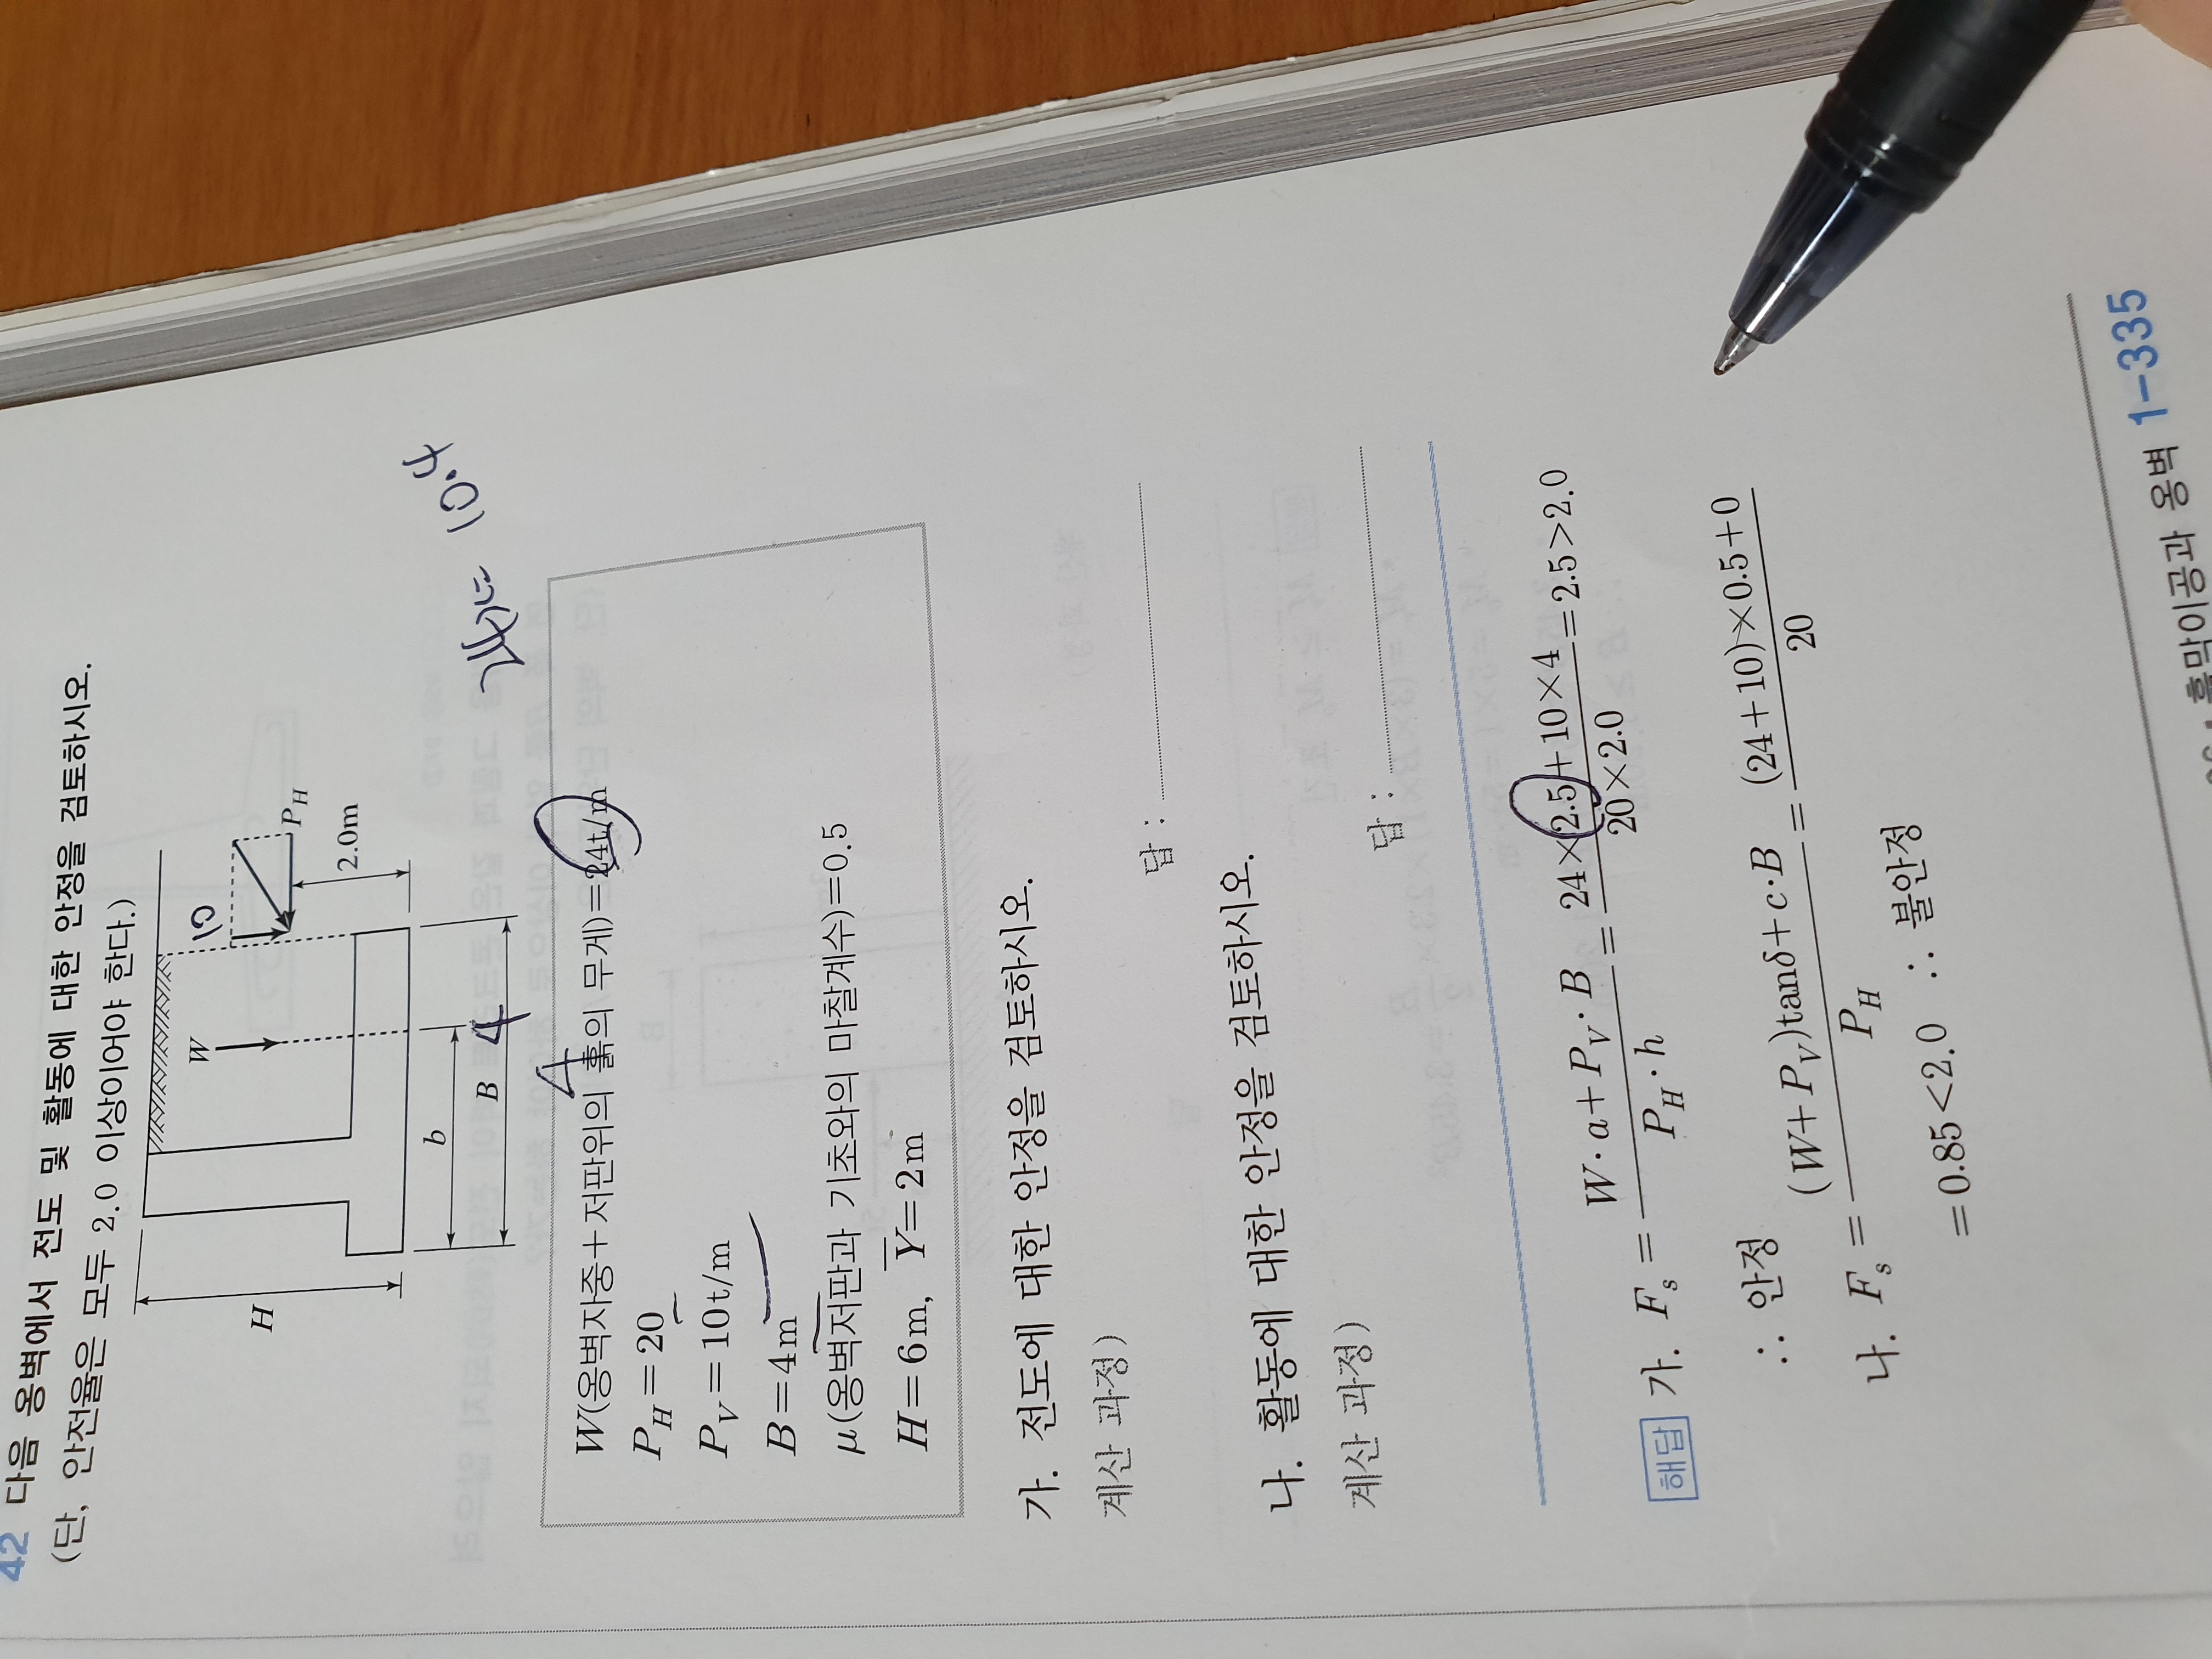 42 다음 옹벽에서 전도 및 활동에 대한 안정을 검토하시오.
(단, 안전율은 모두 2.0 이상이어야 한다.)
W
10
P_H
H
2.0m
b
B
4
10.4
4
W(옹벽자중+저판위의 흙의 무게)=24t/m
P_H=20
P_V=10t/m
B=4m
μ(옹벽저판과 기초와의 마찰계수)=0.5
H=6m, Y̅=2m
가. 전도에 대한 안정을 검토하시오.
계산 과정)
답 :
나. 활동에 대한 안정을 검토하시오.
계산 과정)
답 :
해답 가. F_s = (W·a+P_V·B)/(P_H·h) = (24×2.5+10×4)/(20×2.0) = 2.5>2.0
∴ 안정
나. F_s = ((W+P_V)tanδ+c·B)/P_H = ((24+10)×0.5+0)/20
=0.85<2.0 ∴ 불안정
흙막이공과 옹벽 1-335